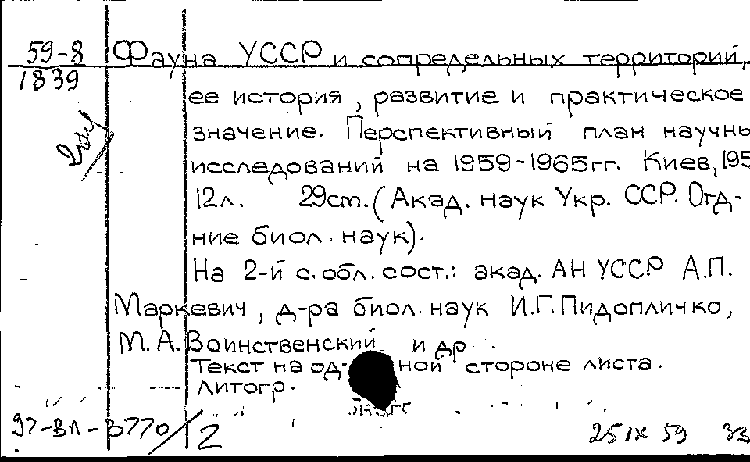 59-8 Фауна УССР и сопредельных территорий,
1839
ее история, развитие и практическое
значение. Перспективный план научны
исследований на 1959-1965гг. Киев, 195
12л. 29cm. (Акад. наук Укр. ССР. Отд-
ние биол. наук).
На 2-й с. обл. сост.: акад. АН УССР А.П.
Маркевич, д-ра биол. наук И.Г. Пидопличко,
М.А. Воинственский и др.
Текст на од- ной стороне листа.
Литогр.
97-ВЛ-3770/2 25 IX 59 33